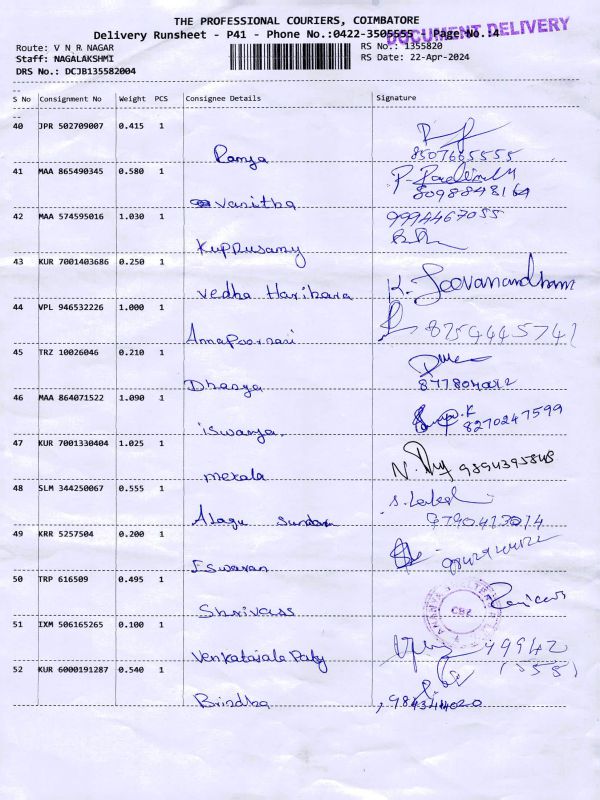 THE PROFESSIONAL COURIERS, COIMBATORE
Delivery Runsheet - P41 - Phone No.:0422-3505555 - Page No.:4
DOCUMENT DELIVERY
Route: V N R NAGAR RS No.: 1355820
Staff: NAGALAKSHMI RS Date: 22-Apr-2024
DRS No.: DCJB135582004
S No Consignment No Weight PCS Consignee Details Signature
40 JPR 502709007 0.415 1
Ramya 8507665555
41 MAA 865490345 0.580 1
vanitha 8098848164
42 MAA 574595016 1.030 1 9994467055
Kuppusamy
43 KUR 7001403686 0.250 1
Vedha Harihara K. Jeevanandham
44 VPL 946532226 1.000 1
Annapoorani
45 TRZ 10026046 0.210 1
Dhasya
46 MAA 864071522 1.090 1
iswarya. 8270247599
47 KUR 7001330404 1.025 1
mekala 9894395848
48 SLM 344250067 0.555 1
Alagu Sundaram 9790413014
49 KRR 5257504 0.200 1
Eswaran
50 TRP 616509 0.495 1
Shrivass
51 IXM 506165265 0.100 1
49942
(555)
52 KUR 6000191287 0.540 1
Brindha